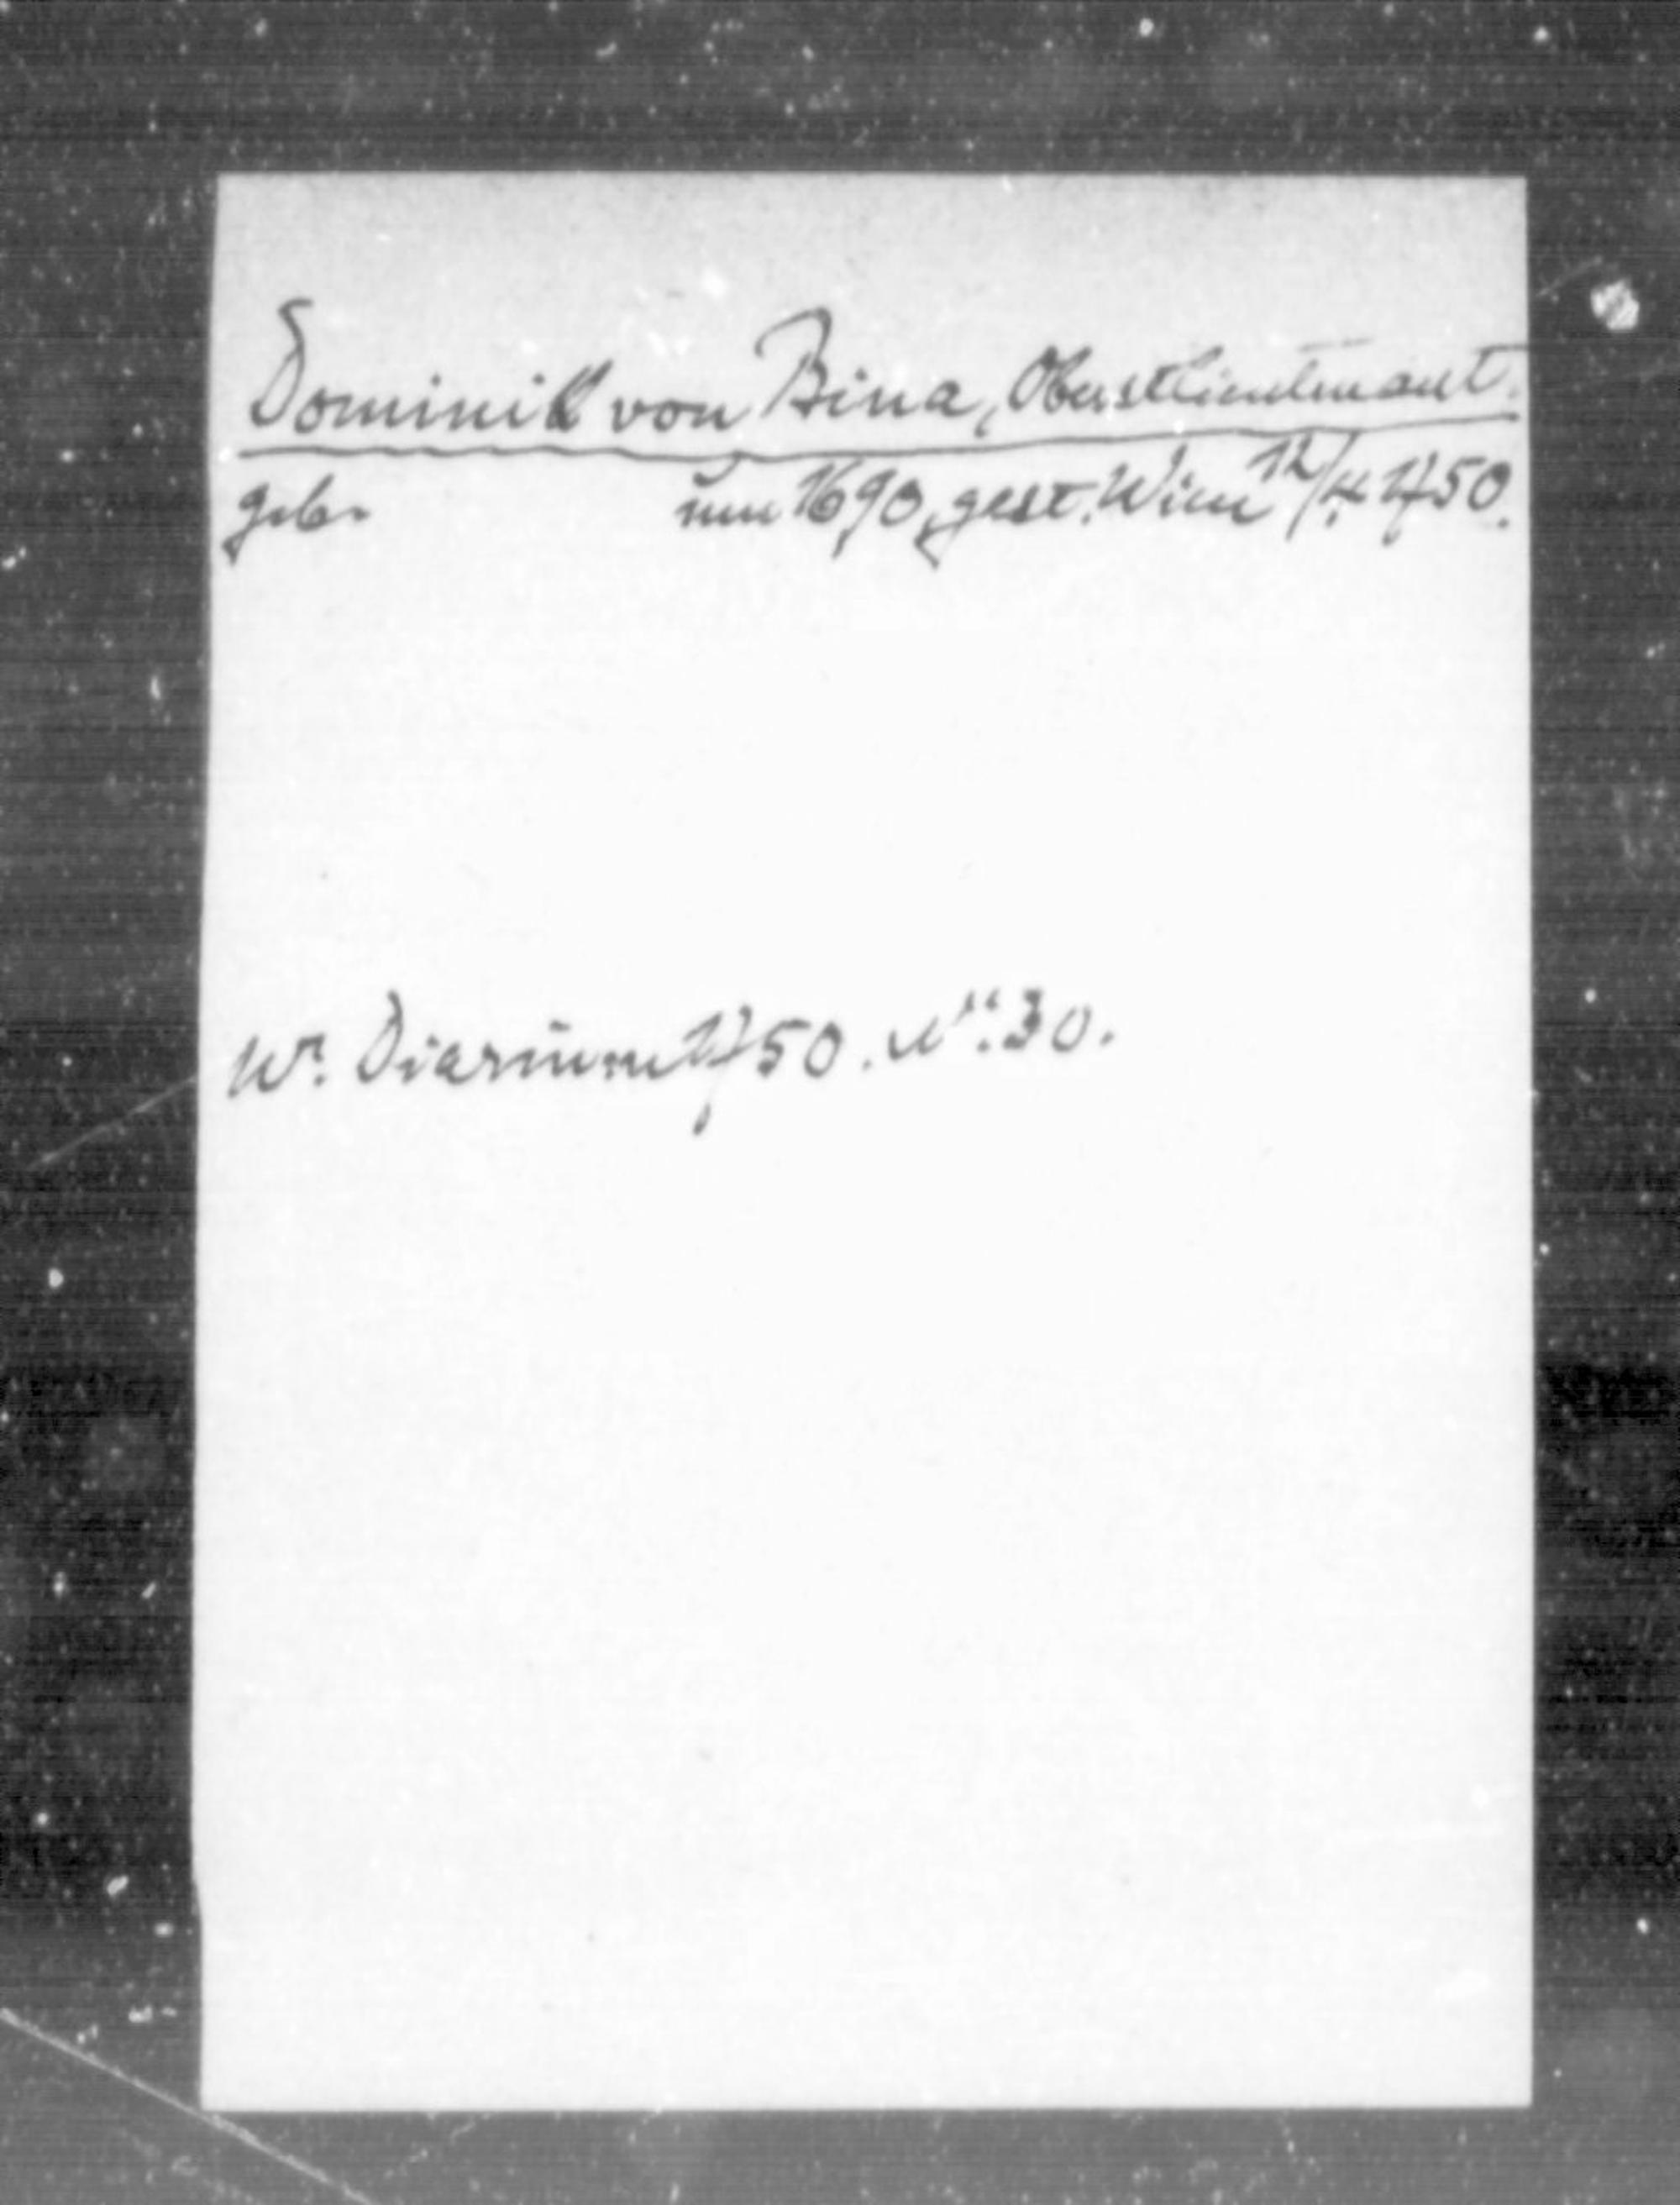 Dominik von Bina, Oberstlieutenant.
geb. um 1690, gest. Wien 12/4. 1750.
Wr. Diarium 1750. Nr. 30.